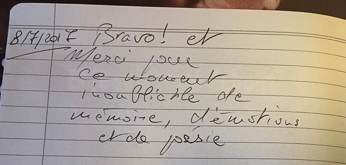 8/7/2017 Bravo! et
Merci pour
ce moment
inoubliable de
mémoire, d'émotions
et de poésie